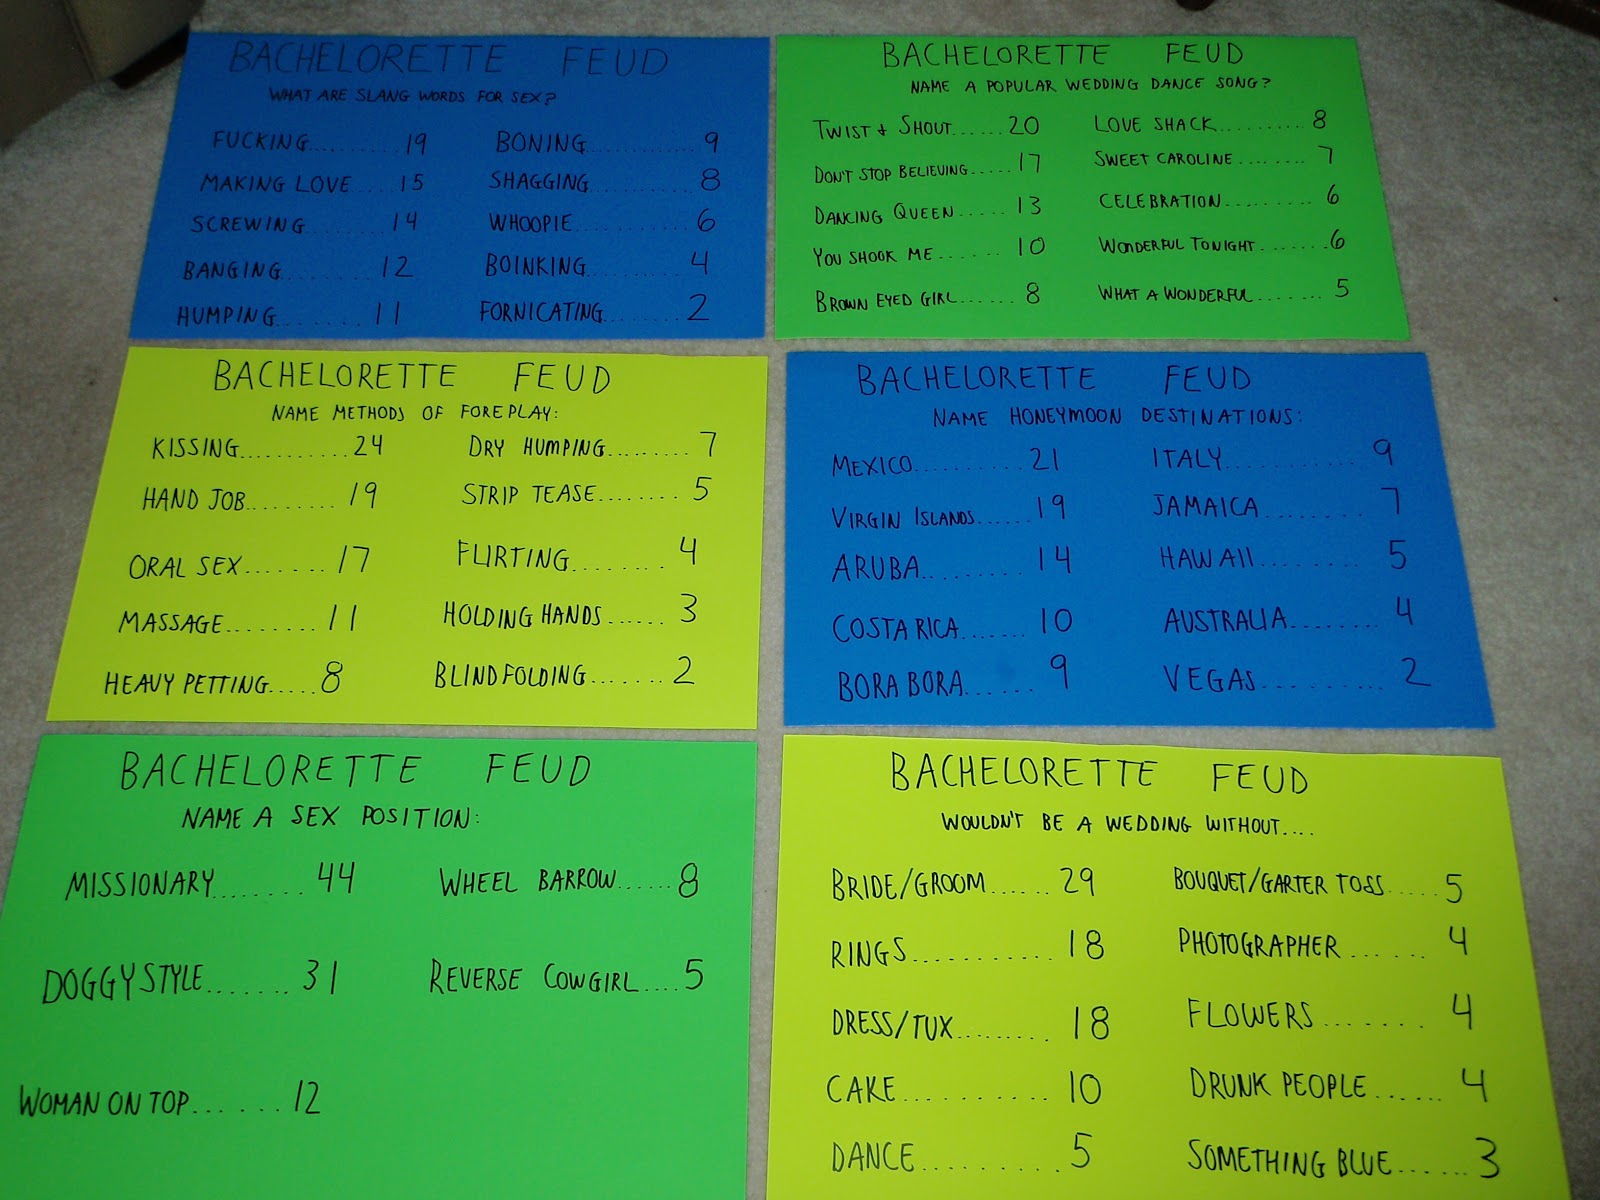 BACHELORETTE FEUD
WHAT ARE SLANG WORDS FOR SEX?
FUCKING..........19
MAKING LOVE....15
SCREWING.........14
BANGING..........12
HUMPING.........11
BONING.............9
SHAGGING..........8
WHOOPIE...........6
BOINKING..........4
FORNICATING.......2
BACHELORETTE FEUD
NAME A POPULAR WEDDING DANCE SONG?
TWIST & SHOUT......20
DON'T STOP BELIEVING.....17
DANCING QUEEN.....13
YOU SHOOK ME......10
BROWN EYED GIRL.....8
LOVE SHACK..........8
SWEET CAROLINE.........7
CELEBRATION..........6
WONDERFUL TONIGHT........6
WHAT A WONDERFUL........5
BACHELORETTE FEUD
NAME METHODS OF FOREPLAY:
KISSING...........24
HAND JOB.........19
ORAL SEX.......17
MASSAGE........11
HEAVY PETTING.....8
DRY HUMPING........7
STRIP TEASE........5
FLIRTING........4
HOLDING HANDS......3
BLINDFOLDING.......2
BACHELORETTE FEUD
NAME HONEYMOON DESTINATIONS:
MEXICO..........21
VIRGIN ISLANDS.....19
ARUBA.........14
COSTA RICA.......10
BORA BORA......9
ITALY...........9
JAMAICA........7
HAWAII.........5
AUSTRALIA........4
VEGAS..........2
BACHELORETTE FEUD
NAME A SEX POSITION:
MISSIONARY.......44
DOGGYSTYLE.......31
WOMAN ON TOP......12
WHEEL BARROW.....8
REVERSE COWGIRL....5
BACHELORETTE FEUD
WOULDN'T BE A WEDDING WITHOUT....
BRIDE/GROOM......29
RINGS...........18
DRESS/TUX........18
CAKE...........10
DANCE..........5
BOUQUET/GARTER TOSS.....5
PHOTOGRAPHER.......4
FLOWERS.......4
DRUNK PEOPLE......4
SOMETHING BLUE......3